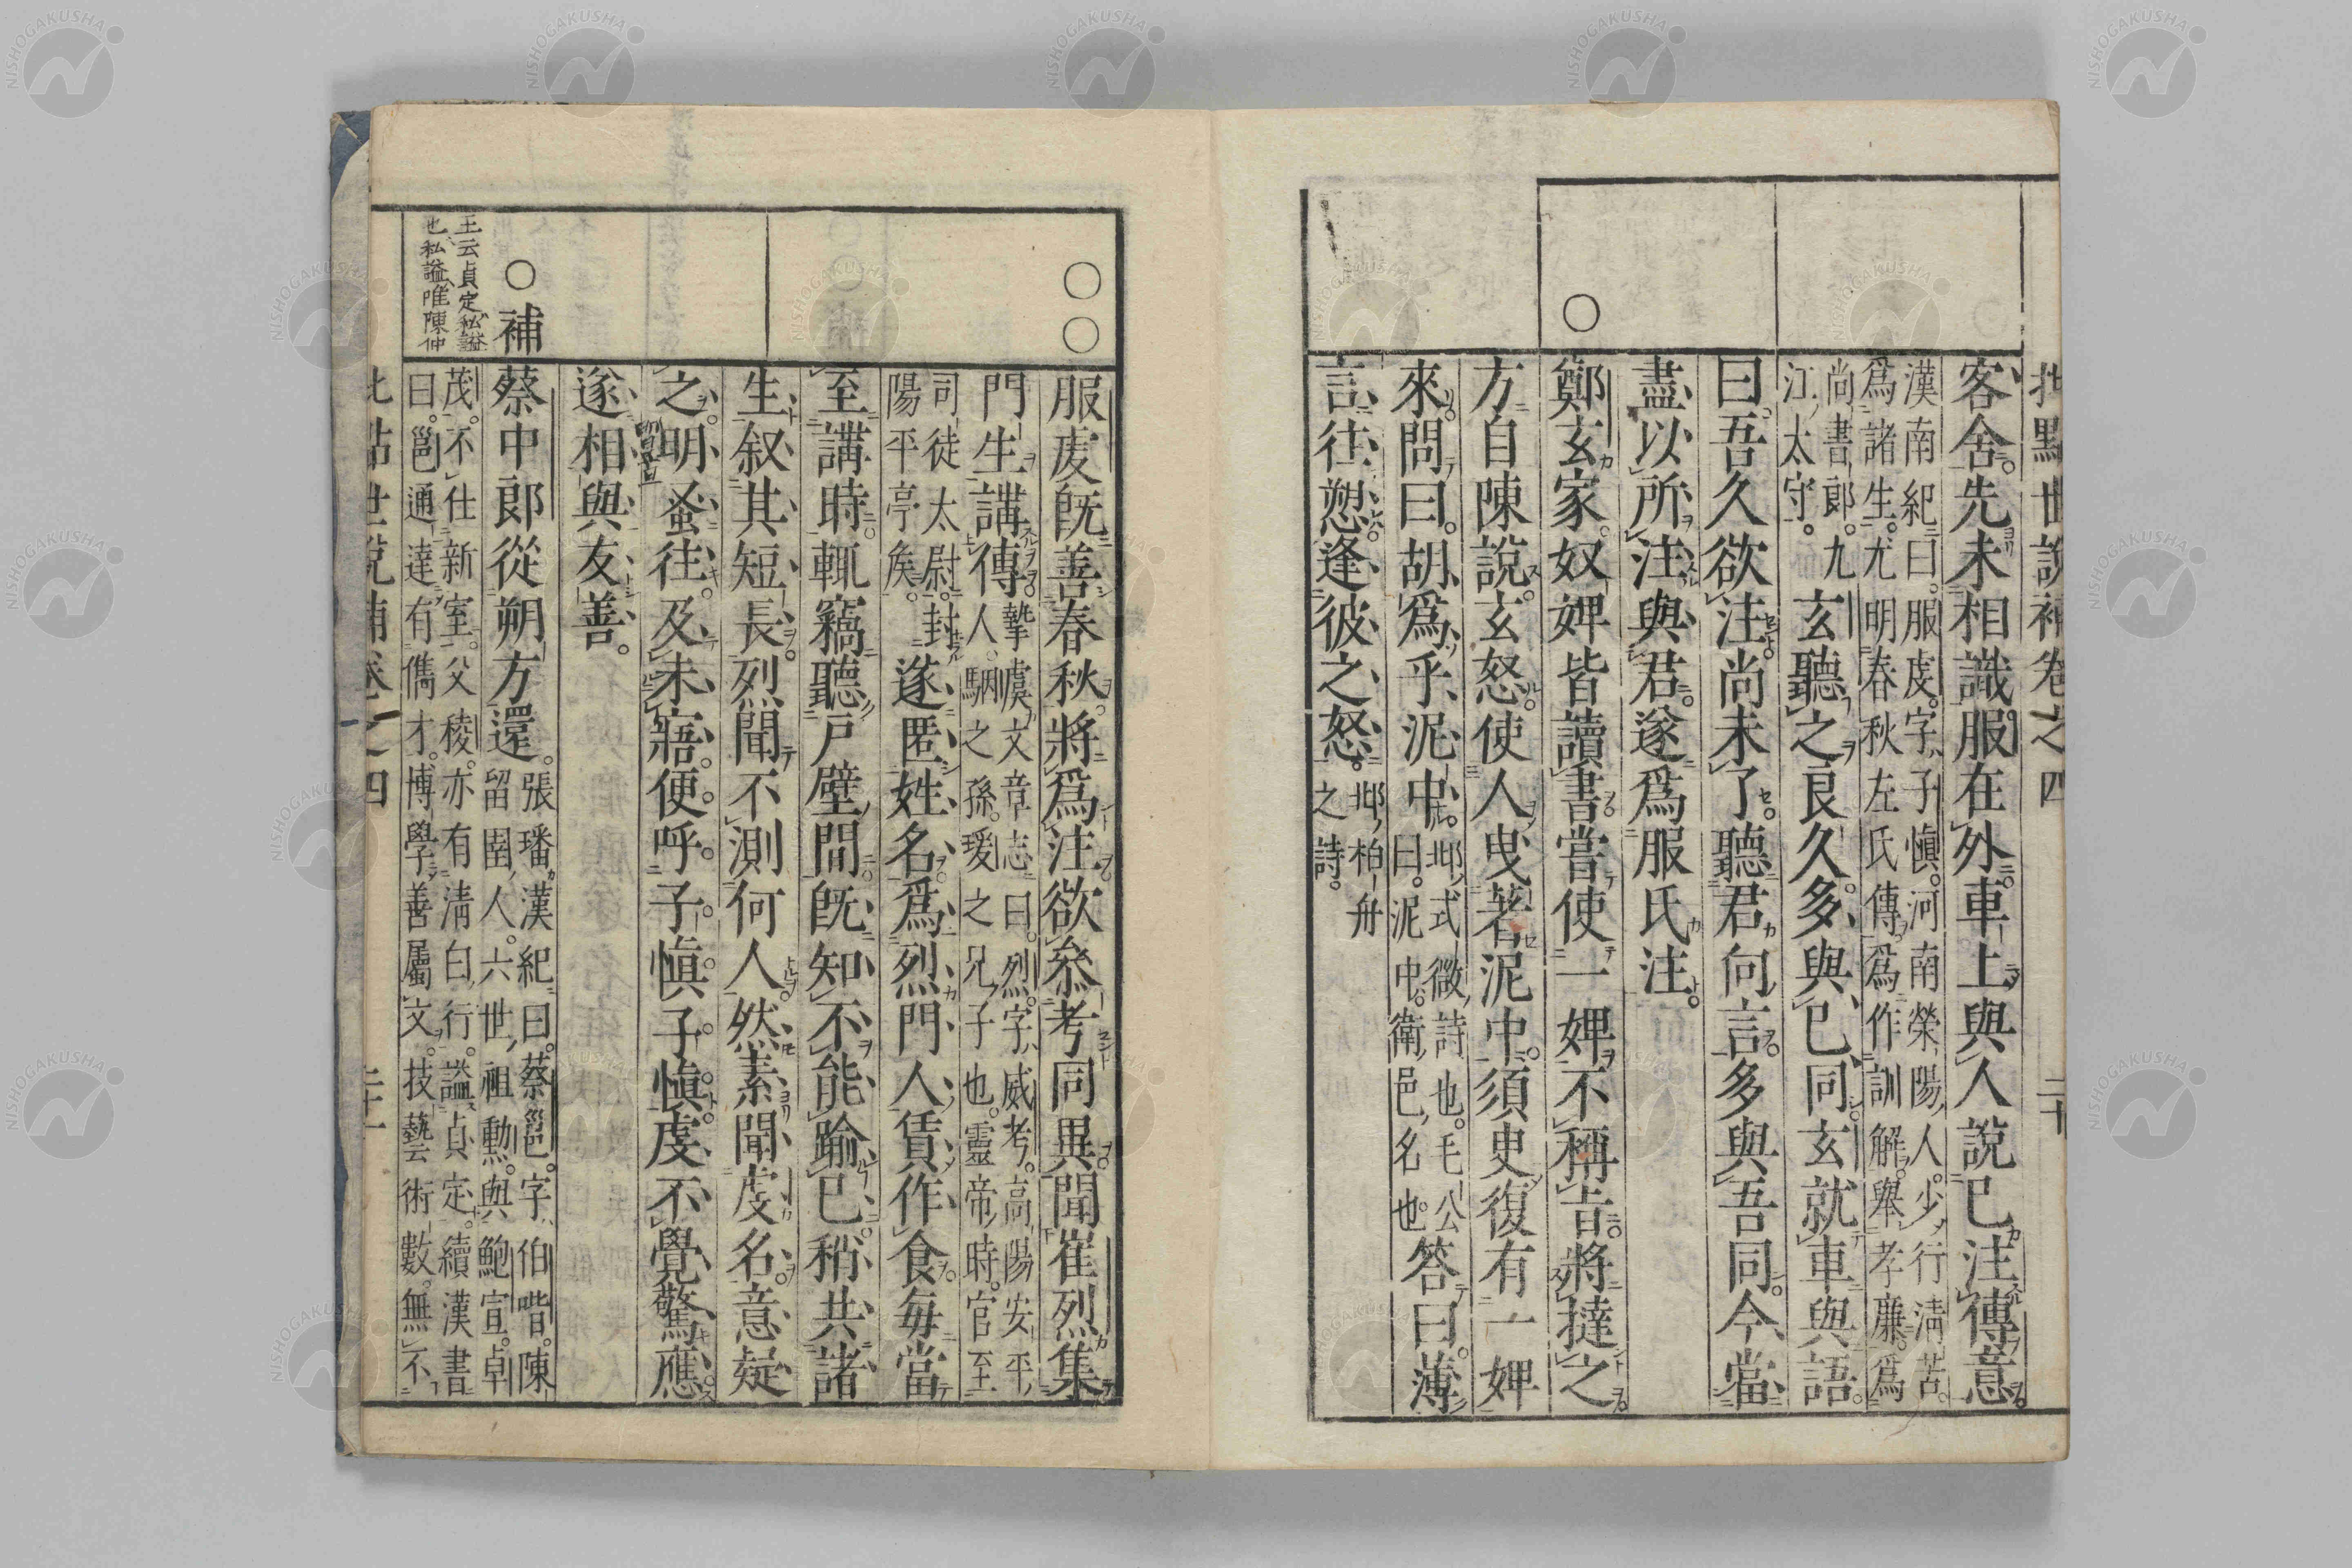 批點世說補卷之四 二十
客舍。先未相識服在外車上與人說已注傳意。
漢南紀曰。服虔。字子慎。河南滎陽人。少行清苦。
爲諸生。尤明春秋左氏傳。爲作訓解。舉孝廉。爲
尚書郎。九
江太守。
玄聽之良久。多與已同。玄就車與語。
曰。吾久欲注。尚未了。聽君向言。多與吾同。今當
盡以所注與君。遂爲服氏注。
○
鄭玄家。奴婢皆讀書。嘗使一婢不稱旨。將撻之。
方自陳說。玄怒。使人曳著泥中。須臾復有一婢
來問曰。胡爲乎泥中。
邶式微詩也。毛公
曰。泥中。衛邑名也。
答曰。薄
言往愬。逢彼之怒。
邶柏舟
之詩。
○○
服虔旣善春秋。將爲注。欲叅考同異。聞崔烈集
門生講傳。
摯虞文章志曰。烈。字威考。高陽安平
人。駰之孫。瑗之兄子也。靈帝時。官至
司徒太尉。封
陽平亭矦。
遂匿姓名。爲烈門人賃作食。每當
至講時。輒竊聽戶壁間。旣知不能踰已。稍共諸
生叙其短長。烈聞不測何人。然素聞虔名。意疑
之。明蚤往。及未寤。便呼子慎子慎。虔不覺驚應。
遂相與友善。
○補
蔡中郎從朔方還。
張璠漢紀曰。蔡邕。字伯喈。陳
留圉人。六世祖勳。與鮑宣。卓
茂。不仕新室。父稜。亦有清白行。謚貞定。續漢書
曰。邕通達有儁才。博學善屬文。技藝術數。無不
王云貞定私謚
也私謚唯陳仲
批點世說補卷之四 二十一